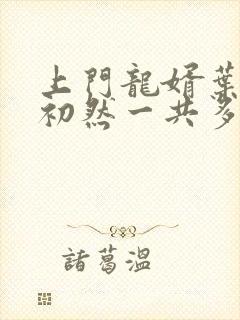 上門龍婿葉
初然一共多
諸葛溫